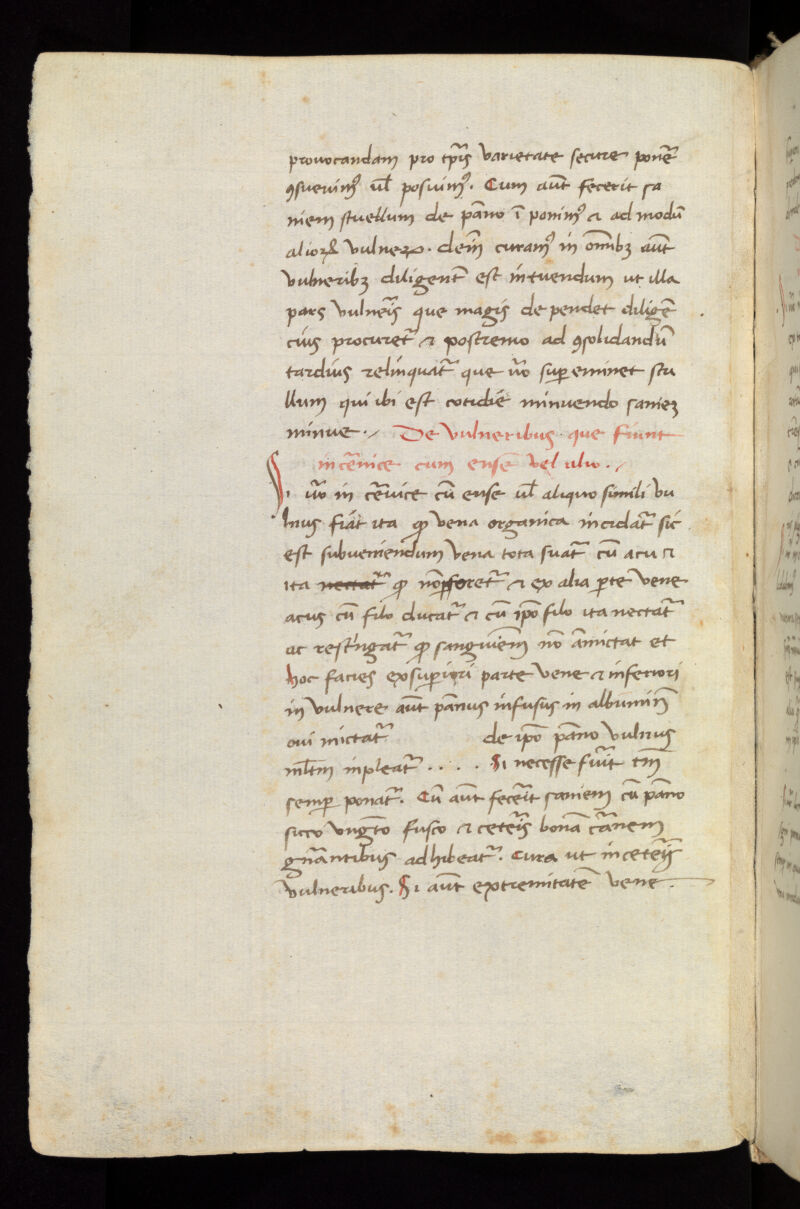 prouocandam pro tp̄is varietate secure ponē
ꝯsueuimꝰ ul̄ posuimꝰ. Cum aūt fecerit sa
niem stuellum de pāno ī ponimꝰ ⁊ ad modū
alioꝝ vulneꝝ. dein̄ curamꝰ in om̄ibꝫ aūt
vulneribꝫ diligent̄ est intuendum ut illa
pars vulner̄is que magis de pendet diligē
cius procuret̄ ⁊ postremo ad ꝯsolidandū
tardius relinquat̄ que u̅o suꝑeminet stu
llum qui ibi est cotidie minuendo saniez
minue. De vulneribus que fiunt
in cer̄uice cum ense vel alio.
Si u̅o in cer̄uice cū ense ul̄ aliquo simili vu
lnus fiāt ita ꝙ vena organica incidat̄ sic
est subueniendum vena tota suat̄ cū acu ⁊
ita nectat̄ ꝙ nō ꝑforet̄ ⁊ ex alia ꝑte vene
acus cū filo ducat̄ ⁊ cū ip̄o filo ita nectat̄
ac restringat̄ ꝙ sanguinem nō āmictat et
hoc facies ex suꝑiori parte vene ⁊ inferiori
in vulnere aūt pānus infusus in albumin̄
oui mictat̄ de ip̄o pāno vulnus
ml̄tm inpleat̄ . . . . Si necesse fuīt tm̄
semꝑ ponat̄. Cū aūt fecīt saniem cū pāno
sicco vngēto fusco ⁊ ceteīs bonā carnem
gn̄antibus adhibeat̄. Cura ut in ceteīs
vulneribus. Si aūt extremitatē vene